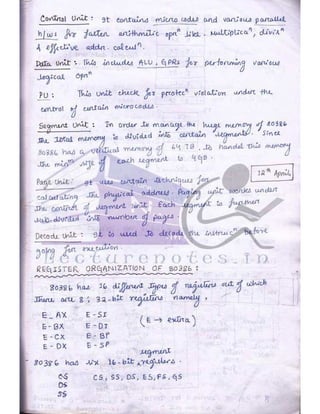 Control Unit : It contains micro codes and various parallel
h/ws for faster arithmetic opnⁿ like. Multiplicⁿ, divixⁿ
& effective addr. calculⁿ.
Data Unit : This includes ALU, GPRs for performing various
logical opnⁿ
PU : This unit check for protecⁿ violation under the
control of certain microcodes.
Segment Unit : In order to manage the huge memory of 80386
the total memory is divided into certain segments. Since
80386 has a virtual memory of 64 TB, to handle this memory
the minᵐ size of each segment is 4GB.
12ᵗʰ April
Page Unit : It uses certain techniques for
calculating the physical address Paging unit works under
the control of segment unit Each segment is further
sub-divided into number of pages.
Decode Unit : It is used to decode the instrucⁿ before
going for execution.
Lecturenotes.in
REGISTER ORGANIZATION OF 80386 :
80386 has 16 different types of registers out of which
There are 8 ; 32-bit registers namely,
E_AX E-SI
E-BX E-DI (E → extra)
E-CX E-BP
E-DX E-SP
segment
80386 has six 16-bit registers.
CS CS, SS, DS, ES, FS, GS
DS
SS